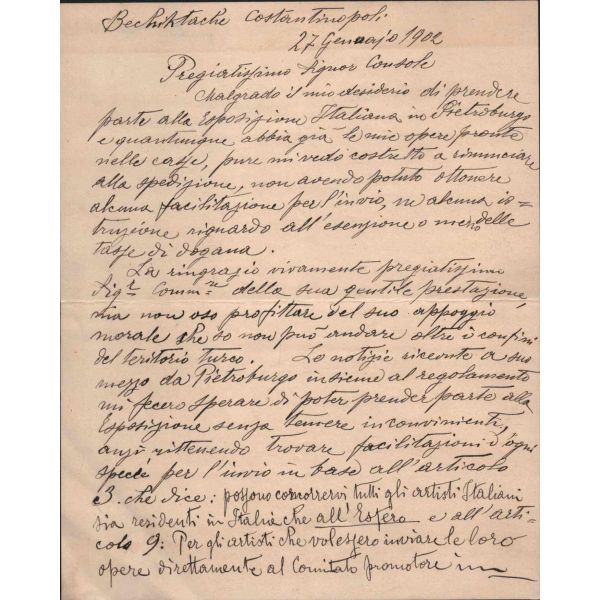 Bechiktache Costantinopoli
27 Gennajo 1902
Pregiatissimo Signor Console
Malgrado il mio desiderio di prendere
parte alla Esposizione Italiana in Pietroburgo
e quantunque abbia già le mie opere pronte
nelle casse, pure mi vedo costretto a rinunciare
alla spedizione, non avendo potuto ottenere
alcuna facilitazione per l'invio, ne alcuna is=
truzione riguardo all'esenzione o meno delle
tasse di dogana.
La ringrazio vivamente pregiatissimo
Sigr Comme della sua gentile prestazione,
ma non oso profittare del suo appoggio
morale che so non può andare oltre i confini
del teritorio turco. Le notizie ricevute a suo
mezzo da Pietroburgo insieme al regolamento
mi fecero sperare di poter prender parte alla
Esposizione senza temere inconvinienti,
anzi rittenendo trovare facilitazioni d'ogni
specie per l'invio in base all'articolo
3. che dice: possono concorrervi tutti gli artisti Italiani
sia residenti in Italia che all'Estero e all'arti-
colo 9: Per gli artisti che volessero inviare le loro
opere direttamente al Comitato promotore in